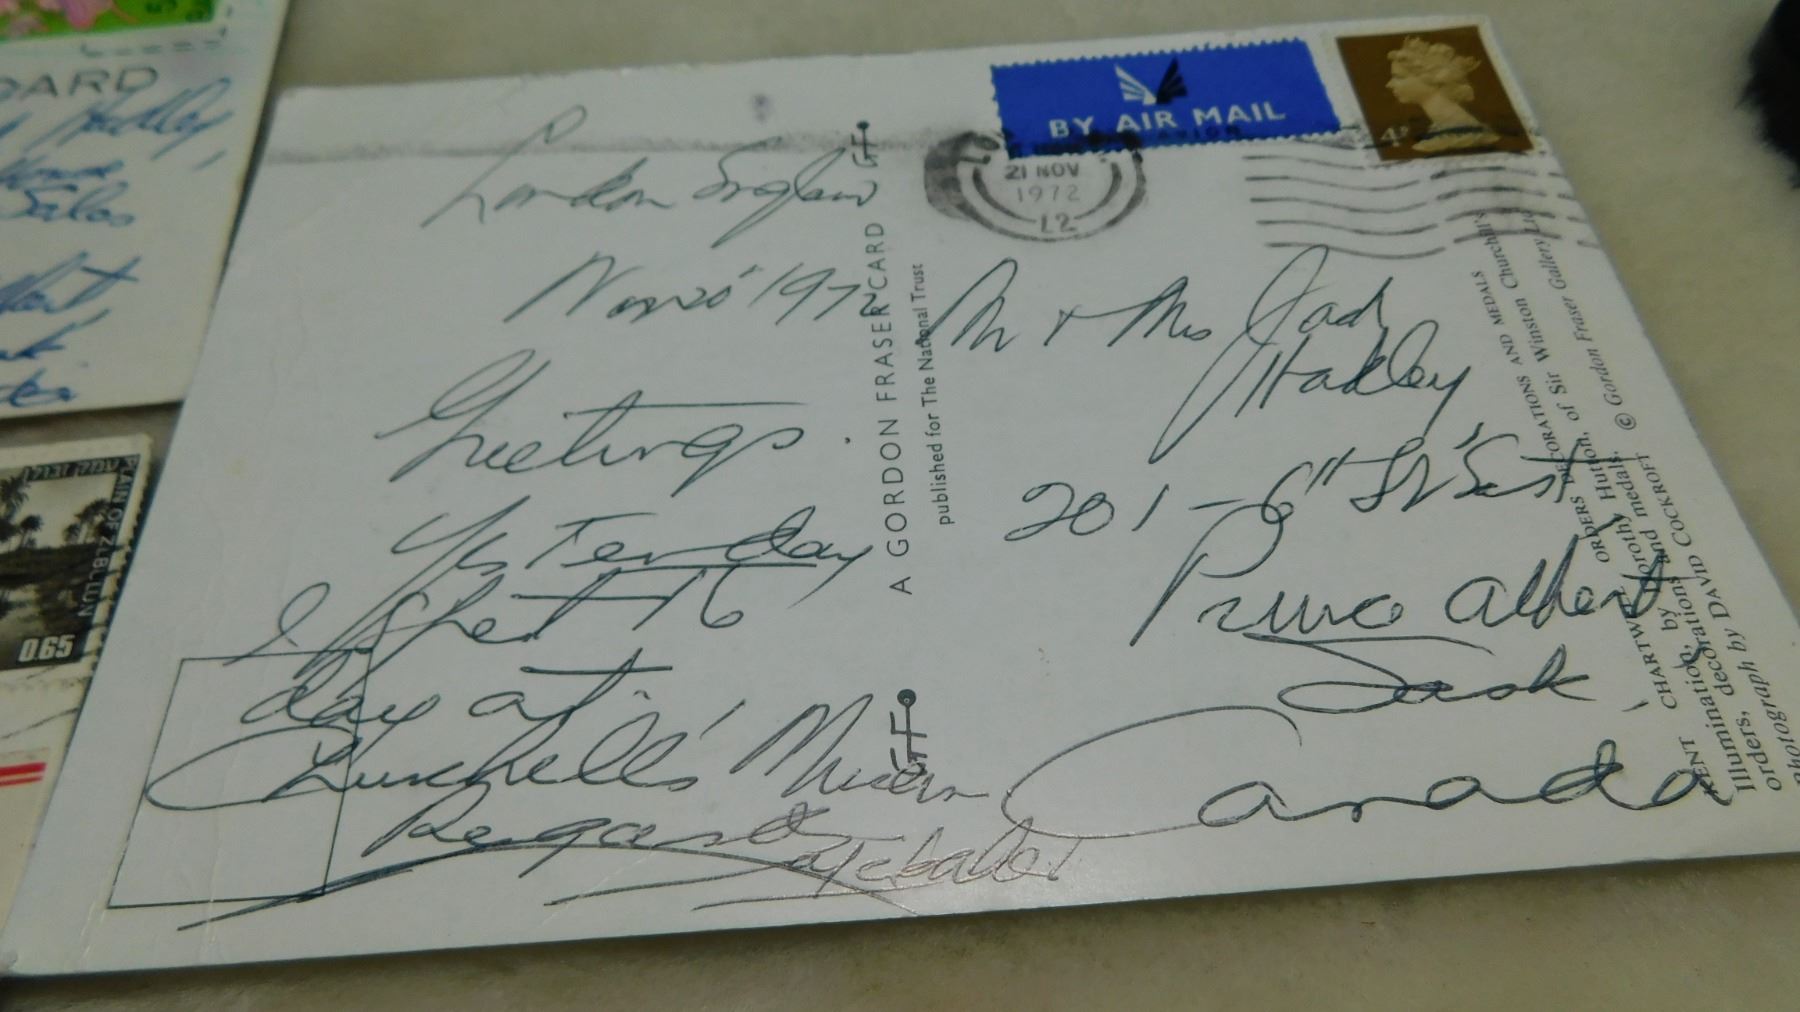 London England
Nov 20 1972
Greetings.
Yesterday
I spent
day at
Churchill's Museum
Regards
A GORDON FRASER CARD
published for The National Trust
BY AIR MAIL
PAR AVION
21 NOV
1972
12
4P
Mr & Mrs Jack
Hadley
201 - 6th St East
Prince Albert
Sask,
Canada
CHARTWELL, KENT
ORDERS, DECORATIONS AND MEDALS
Illumination, by Dorothy Hutton, of Sir Winston Churchill's
orders, decorations and medals.
Photograph by DAVID COCKROFT © Gordon Fraser Gallery Ltd
CARD
Hadley,
Sales
0.65